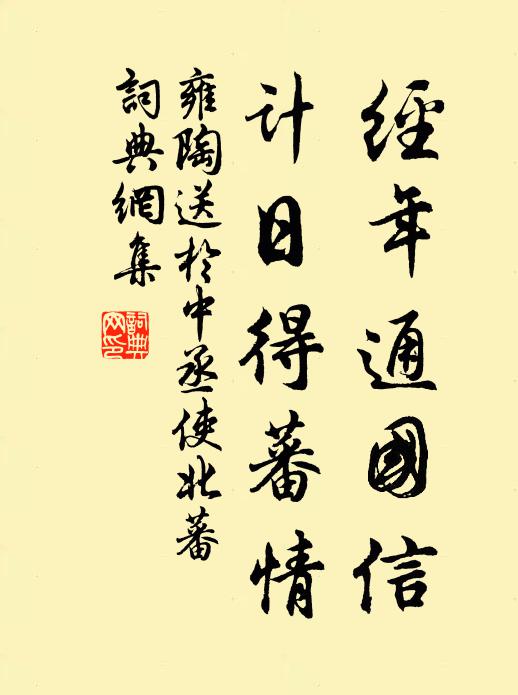 經年通國信
計日得蕃情
雍陶送於中丞使北蕃
詞典網集
詞典
网印